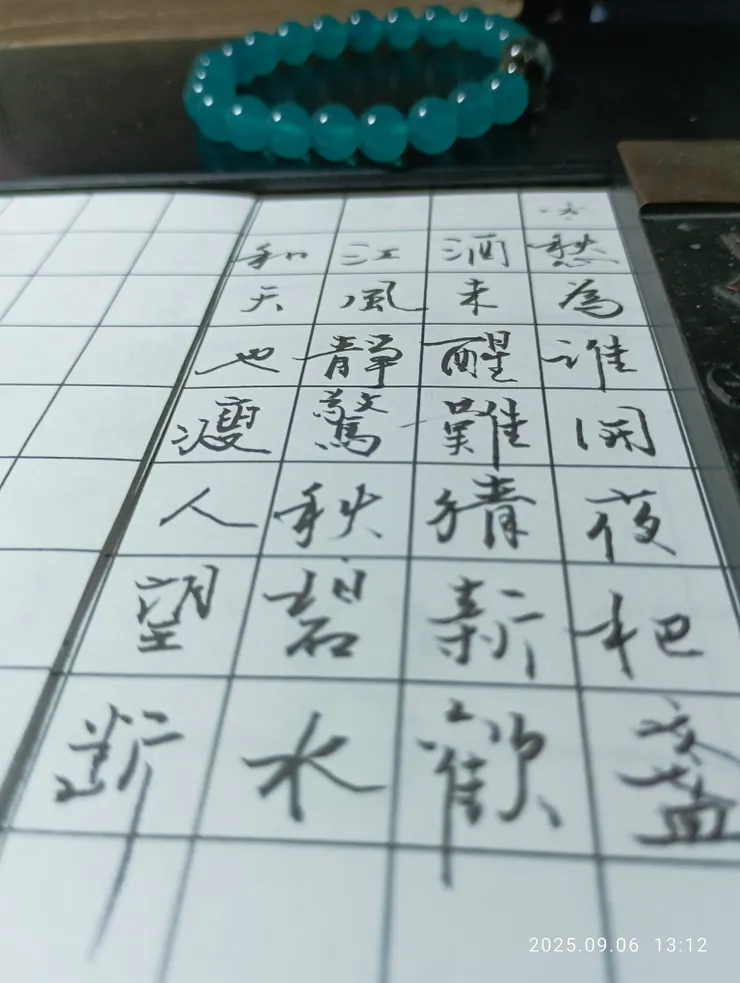 愁為誰開夜把盞
酒未醒難猜新歡
江風靜驚秋碧水
和天也瘦人望斷
2025.09.06 13:12